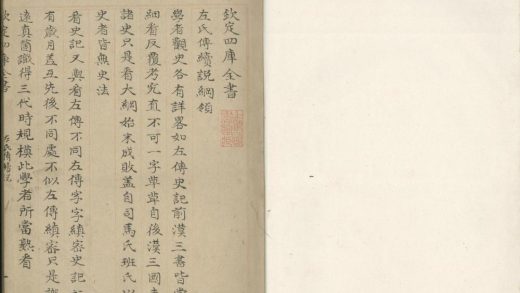 欽定四庫全書
左氏傳續說綱領
學者觀史各有詳略如左傳史記前漢三書皆當
細看反覆考究直不可一字草草自後漢三國
諸史只是看大綱始末成敗蓋自司馬氏班氏以
史者皆無史法
看史記又與看左傳不同左傳字字縝密史記
有歲月差互先後不同處不似左傳縝密只是
遠真箇識得三代時規模此學者所當熟看
欽定四庫全書
左氏傳續說
一